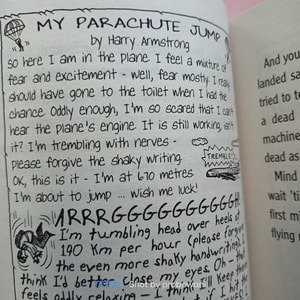 MY PARACHUTE JUMP
by Harry Armstrong
So here I am in the plane. I feel a mixture of
fear and excitement - well, fear mostly. I really
should have gone to the toilet when I had the
chance. Oddly enough, I'm so scared that I can't
hear the plane's engine. It is still working, isn't
it? I'm trembling with nerves -
please forgive the shaky writing.
TREMBLE!
OK, this is it - I'm at 670 metres
I'm about to jump ... wish me luck!
ARRRGGGGGGGGGH
I'm tumbling head over heels at
190 km per hour (please forgive
the even more shaky handwriting). I
think I'd better close my eyes. Oh - this
feels oddly relaxing - I think if I keep them
And you
landed sa
tried to t
a dead
machine
dead as
Mind
wait 'til
first mi
flying